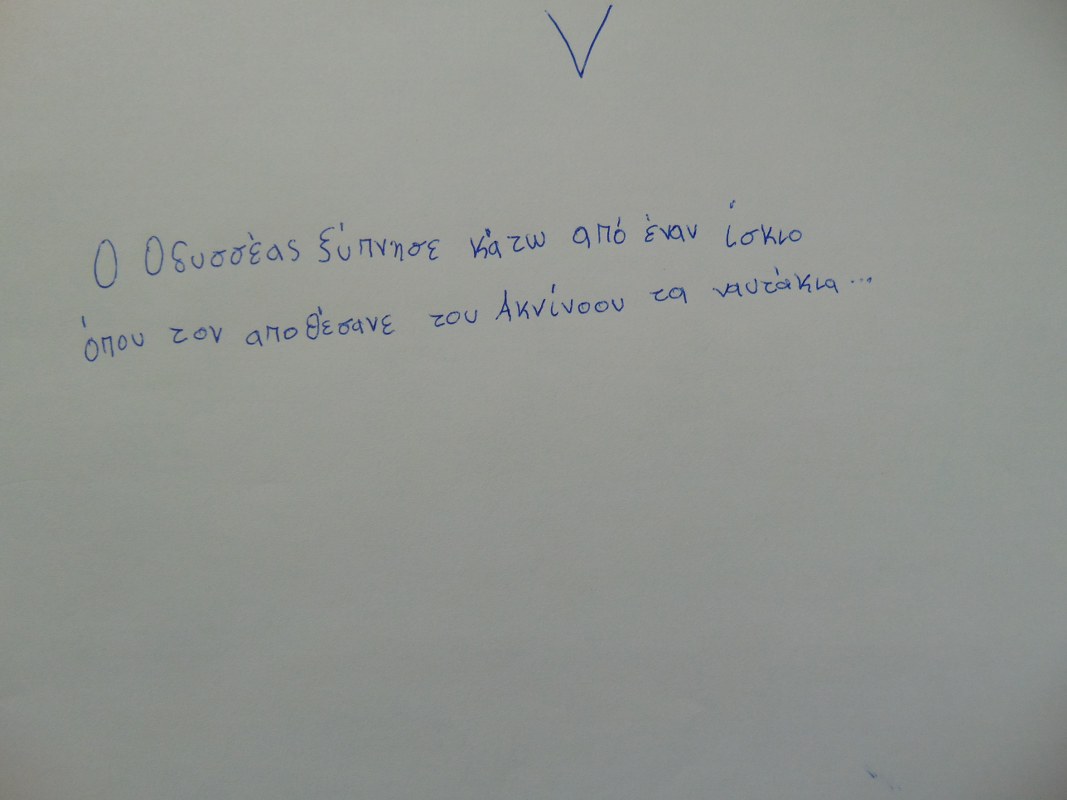 V
Ο Οδυσσέας ξύπνησε κάτω από έναν ίσκιο
όπου τον αποθέσανε του Ακνίνοου τα ναυτάκια...